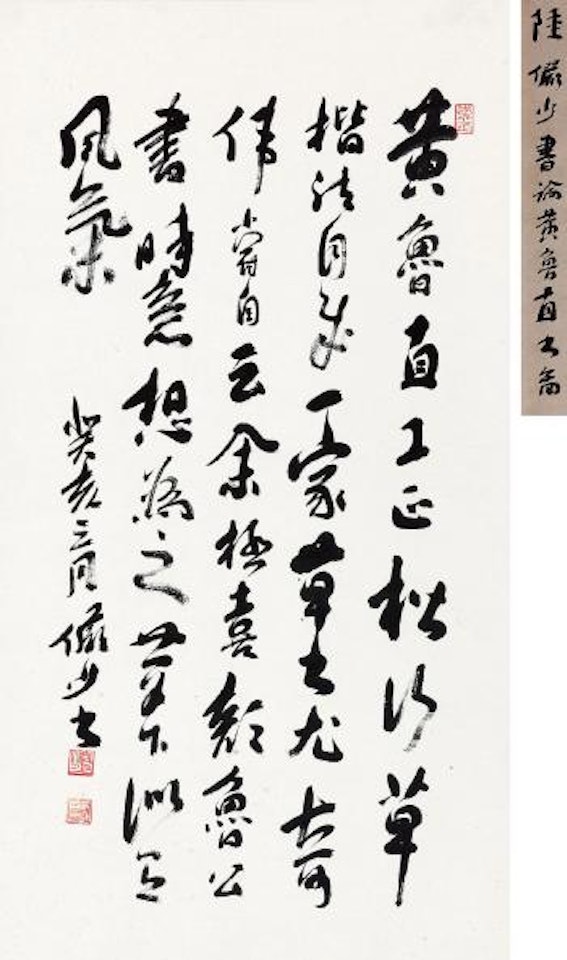 陸儼少書論黄魯直書
黄魯直工正楷行草
楷法自成一家草書尤奇
伟嘗自云余極喜顏魯公
書時意想為之筆下似有
風氣
癸亥三月儼少書